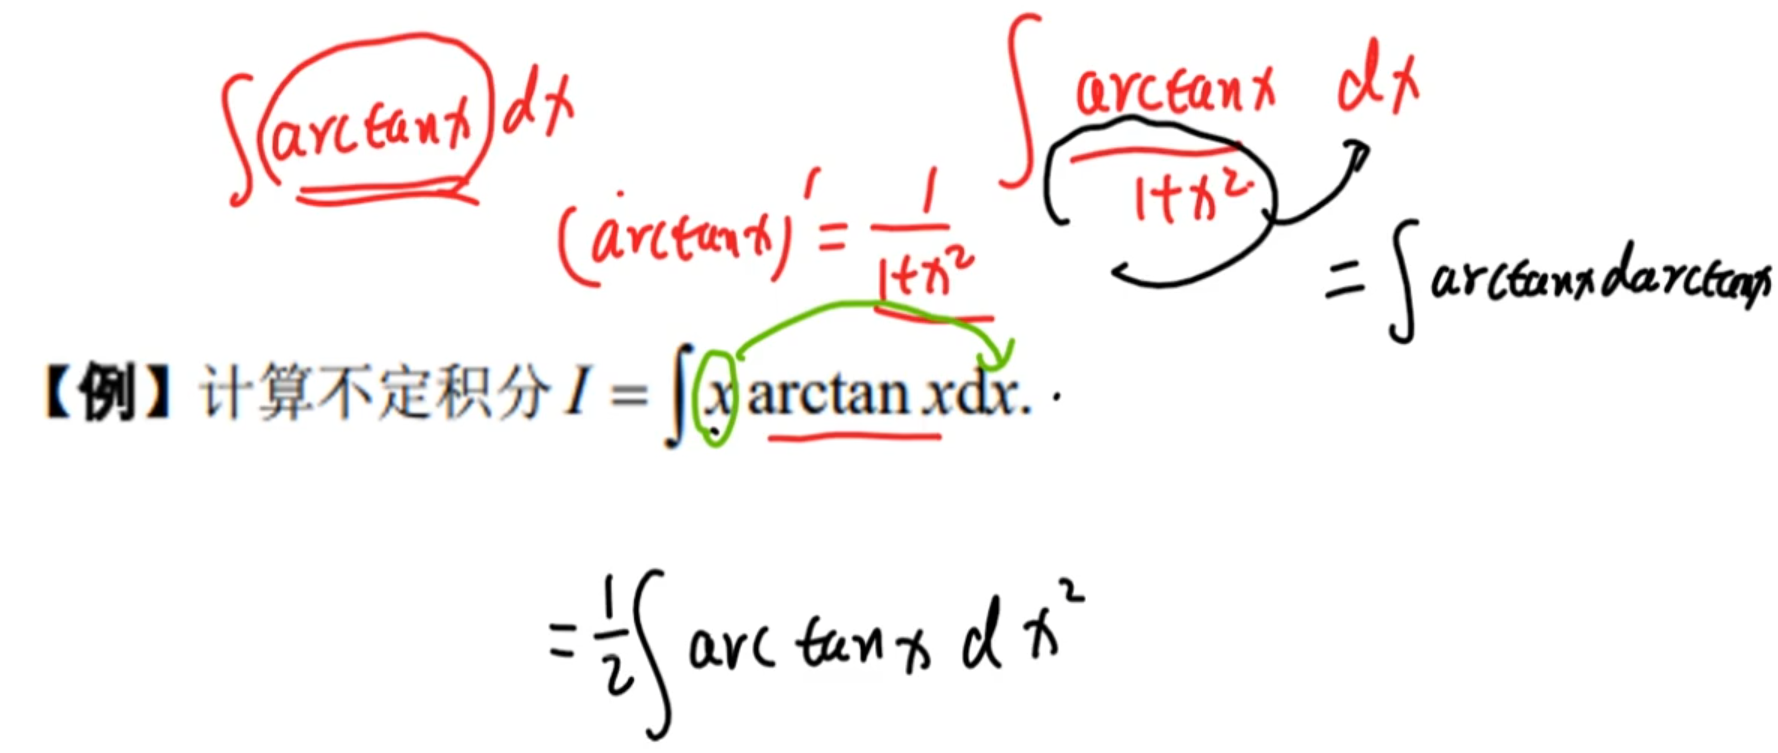 ∫ arctanx dx
∫ arctanx/(1+x²) dx
(arctanx)′ = 1/(1+x²)
= ∫ arctanx darctanx
【例】计算不定积分 I = ∫ x arctan xdx.
= 1/2 ∫ arc tan x d x²